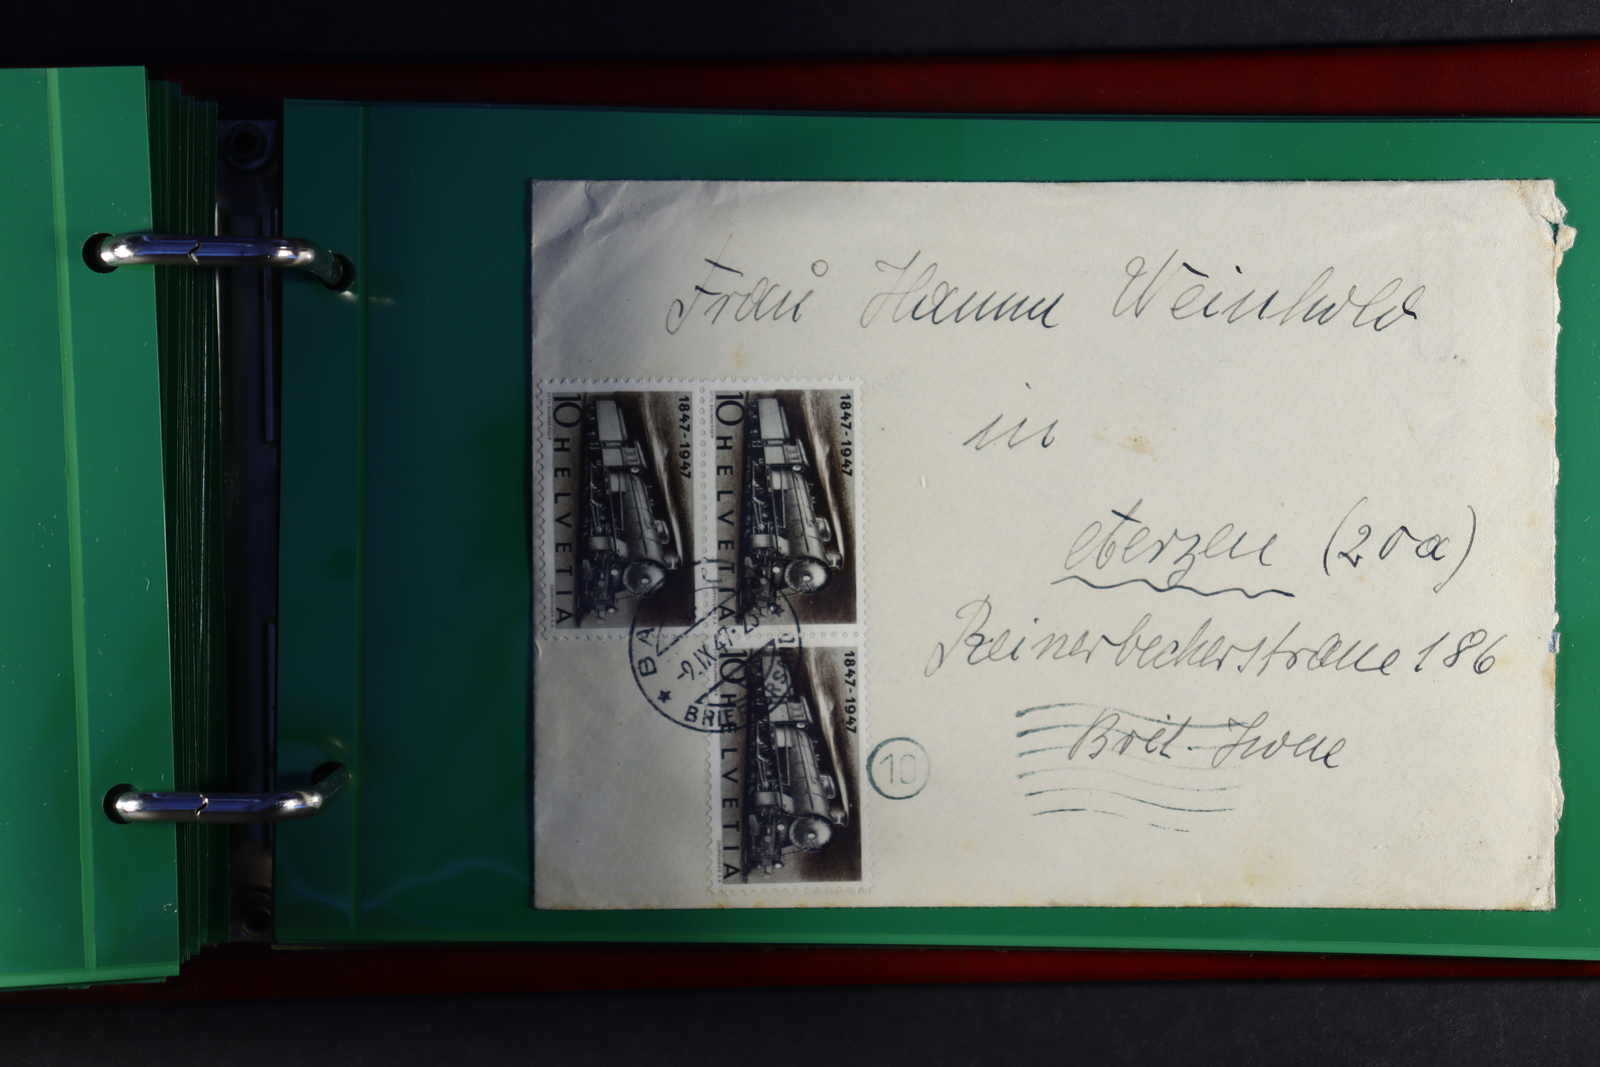 Frau Hanna Weinhold
in
Aerzen (20a)
Reinerbeckerstrasse 186
Brit. Zone
1847-1947
10 HELVETIA
1847-1947
10 HELVETIA
1847-1947
10 HELVETIA
BA
-9.IX.47-
BRIEFVERSAND
10